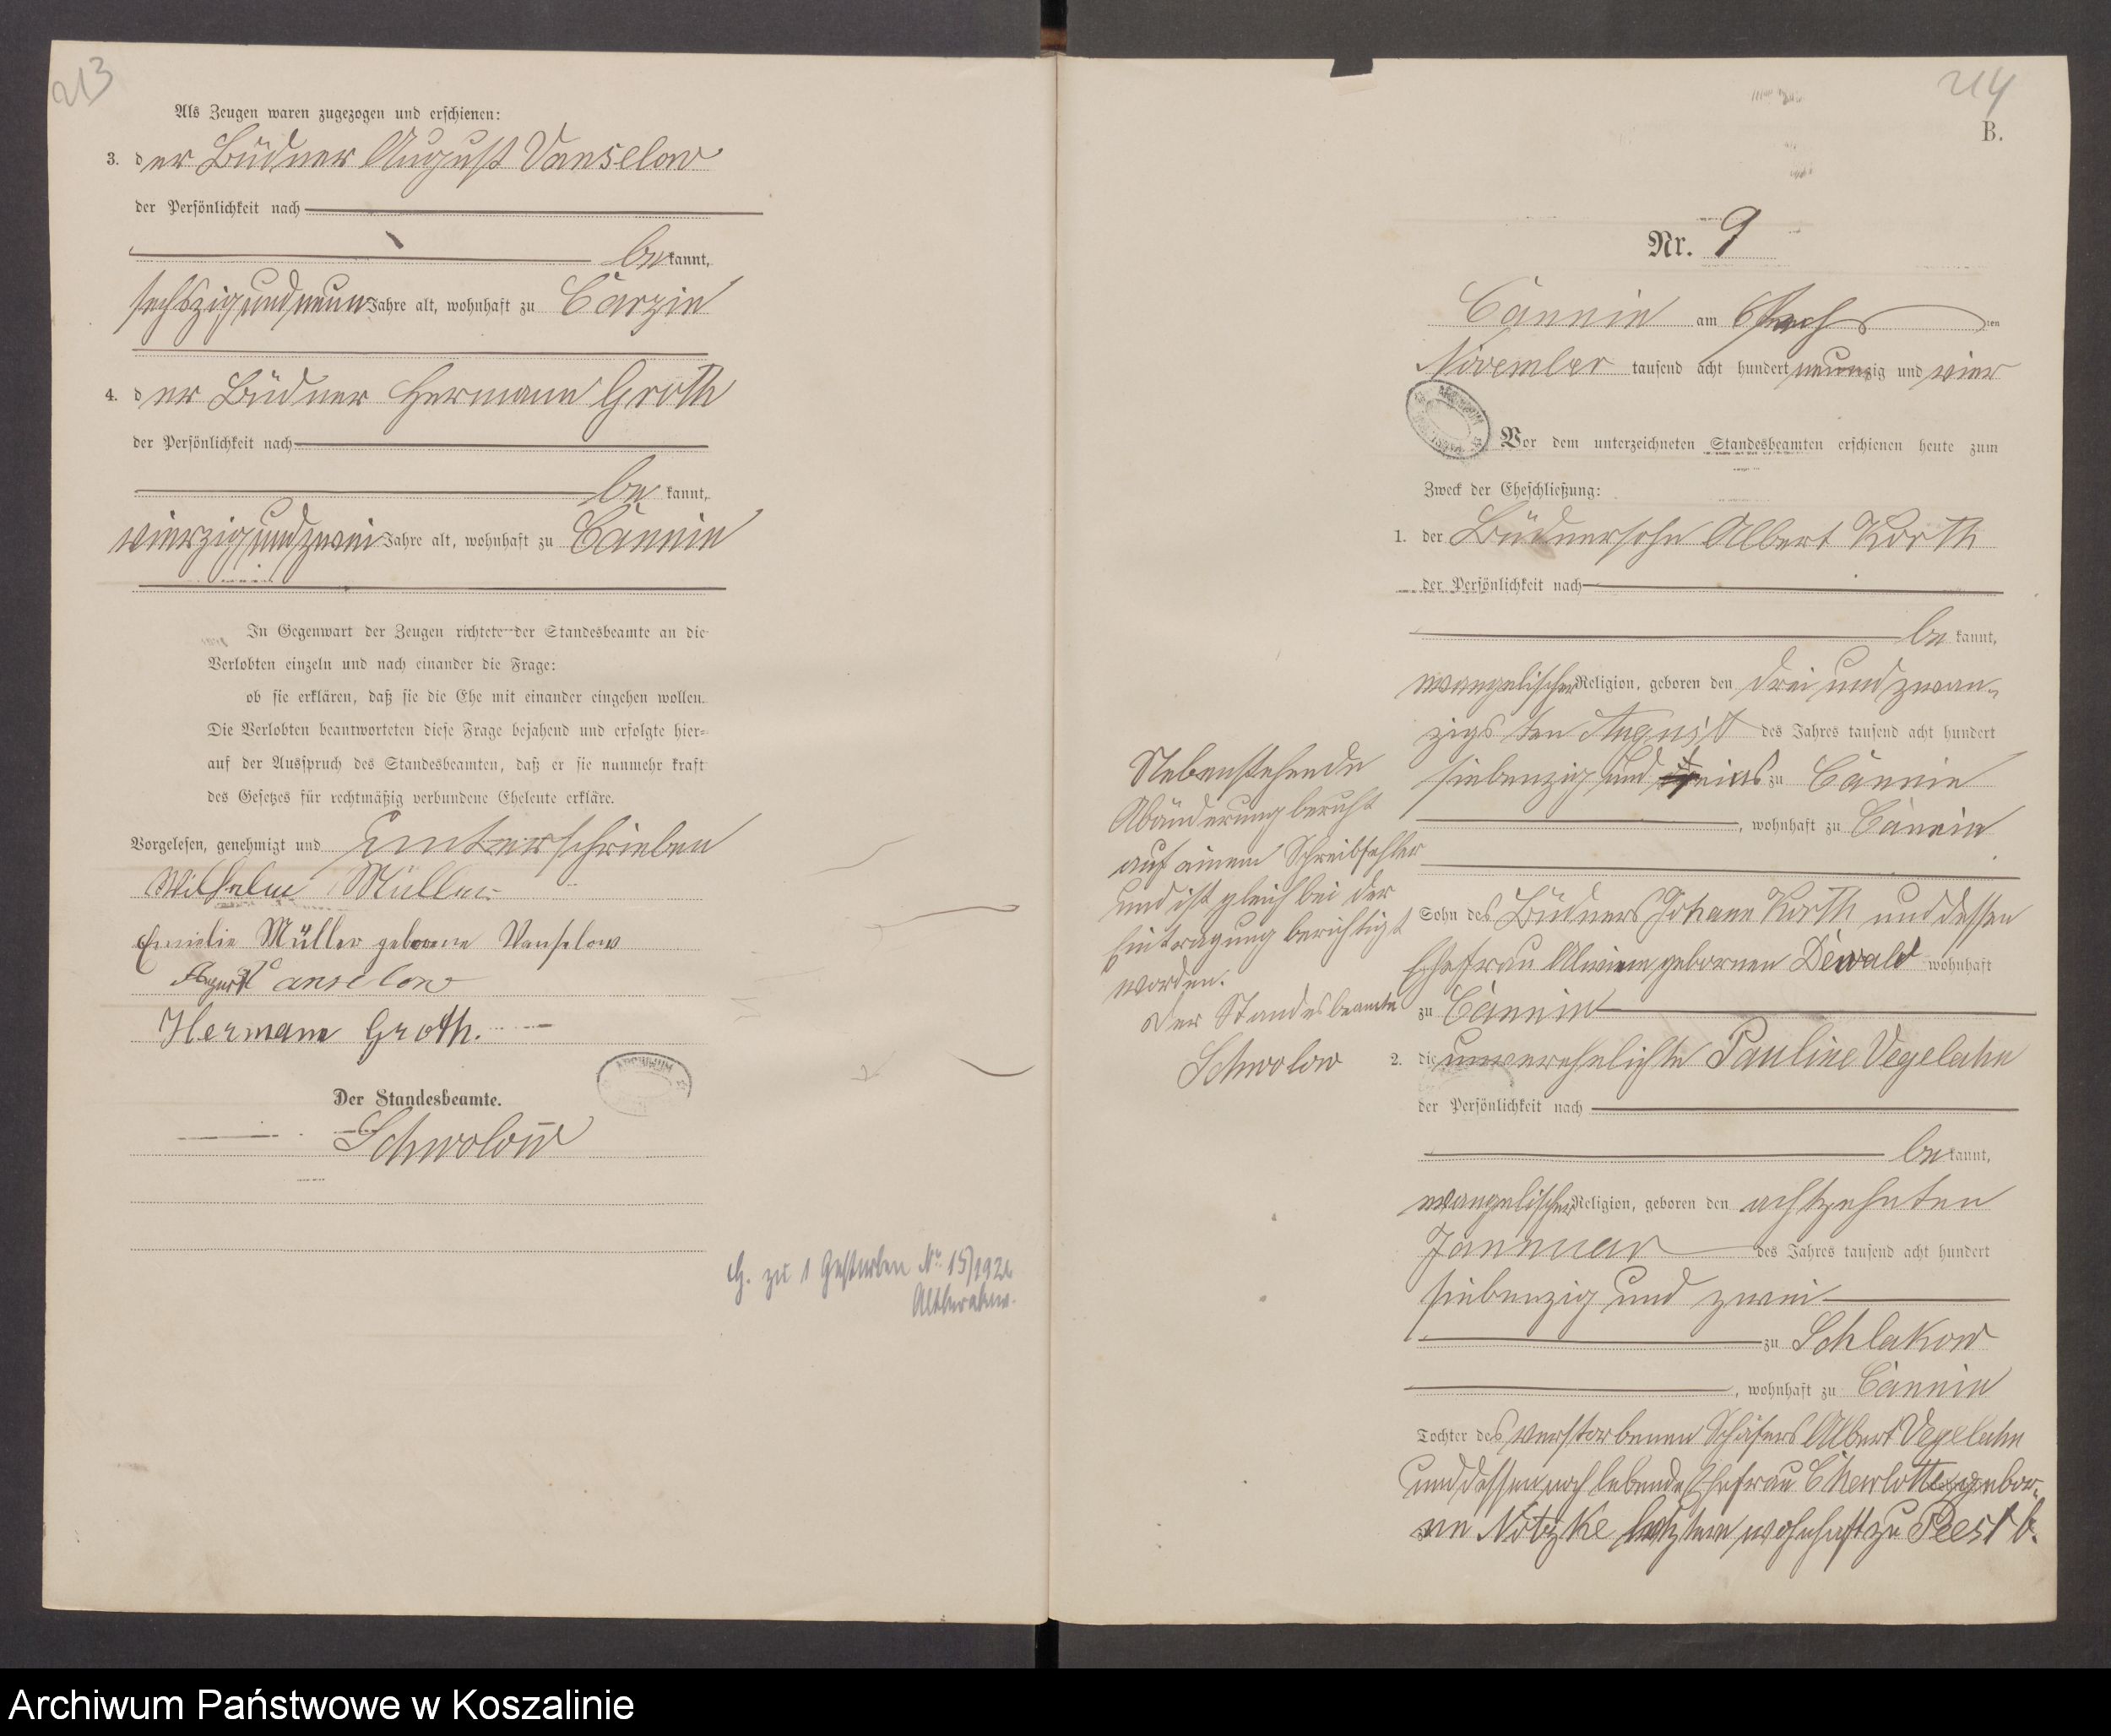 213
Als Zeugen waren zugezogen und erschienen:
3. der Büdner August Vanselow
der Persönlichkeit nach
be kannt,
sechszig und neun Jahre alt, wohnhaft zu Carzin
4. der Büdner Hermann Groth
der Persönlichkeit nach
be kannt,
vierzig und zwei Jahre alt, wohnhaft zu Cannin
In Gegenwart der Zeugen richtete der Standesbeamte an die
Verlobten einzeln und nach einander die Frage:
ob sie erklären, daß sie die Ehe mit einander eingehen wollen.
Die Verlobten beantworteten diese Frage bejahend und erfolgte hier=
auf der Ausspruch des Standesbeamten, daß er sie nunmehr kraft
des Gesetzes für rechtmäßig verbundene Eheleute erkläre.
Vorgelesen, genehmigt und unterschrieben
Wilhelm Müller
Emielie Müller geborene Vanselow
August Vanselow
Hermann Groth.
ARCHIWUM
Der Standesbeamte.
Schwolow
G. zu 1 Gestorben Nr 15/1926
214
B.
Nr. 9
Cannin am 6 Sechs ten
November tausend acht hundert neunzig und vier
ARCHIWUM
Vor dem unterzeichneten Standesbeamten erschienen heute zum
Zweck der Eheschließung:
1. der Büdnersohn Albert Korth
der Persönlichkeit nach
be kannt,
evangelischer Religion, geboren den drei und zwan=
zigsten August des Jahres tausend acht hundert
siebenzig und eins zu Cannin
, wohnhaft zu Cannin
Sohn des Büdners Johann Korth und dessen
Ehefrau Alwine gebornen Dewald wohnhaft
zu Cannin
2. die unverehelichte Pauline Vegelahn
der Persönlichkeit nach
be kannt,
evangelischer Religion, geboren den achtzehnten
Jannuar des Jahres tausend acht hundert
siebenzig und zwei
zu Schlakow
, wohnhaft zu Cannin
Tochter des verstorbenen Schäfers Albert Vegelahn
und dessen noch lebende Ehefrau Charlotte gebor=
ne Nötzke letztere wohnhaft zu Peest b.
Nebenstehende
Abänderung beruht
auf einem Schreibfehler
und ist gleich bei der
Eintragung berichtigt
worden.
Der Standesbeamte
Schwolow
Archiwum Państwowe w Koszalinie